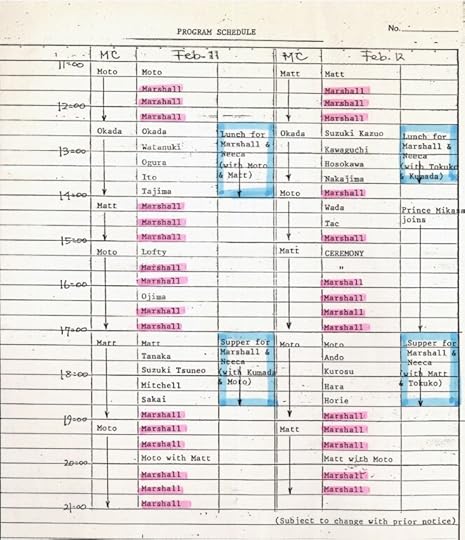 PROGRAM SCHEDULE
No.
MC Feb. 11 MC Feb. 12
11=00
Moto Moto Matt Matt
Marshall Marshall
Marshall Marshall
12=00
Marshall Marshall
Okada Okada Lunch for Okada Suzuki Kazuo Lunch for
Watanuki Marshall & Kawaguchi Marshall &
13=00
Ogura Neeca Hosokawa Neeca
Ito (with Moto Nakajima (with Tokuko
Tajima & Matt) Moto Marshall & Kumada)
14=00
Matt Marshall Wada Prince Mikasa
Marshall Tac joins
Marshall Marshall
15=00
Moto Lofty Matt CEREMONY
Marshall "
Marshall Marshall
16=00
Ojima Marshall
Marshall Marshall
Marshall Marshall
17=00
Matt Matt Supper for Moto Moto Supper for
Tanaka Marshall & Ando Marshall &
Suzuki Tsuneo Neeca Kurosu Neeca
18=00
Mitchell (with Kumada Hara (with Matt
Sakai & Moto) Horie & Tokuko)
19=00
Marshall Marshall
Moto Marshall Matt Marshall
Marshall Marshall
20=00
Moto with Matt Matt with Moto
Marshall Marshall
Marshall Marshall
21=00
Marshall
(Subject to change with prior notice)